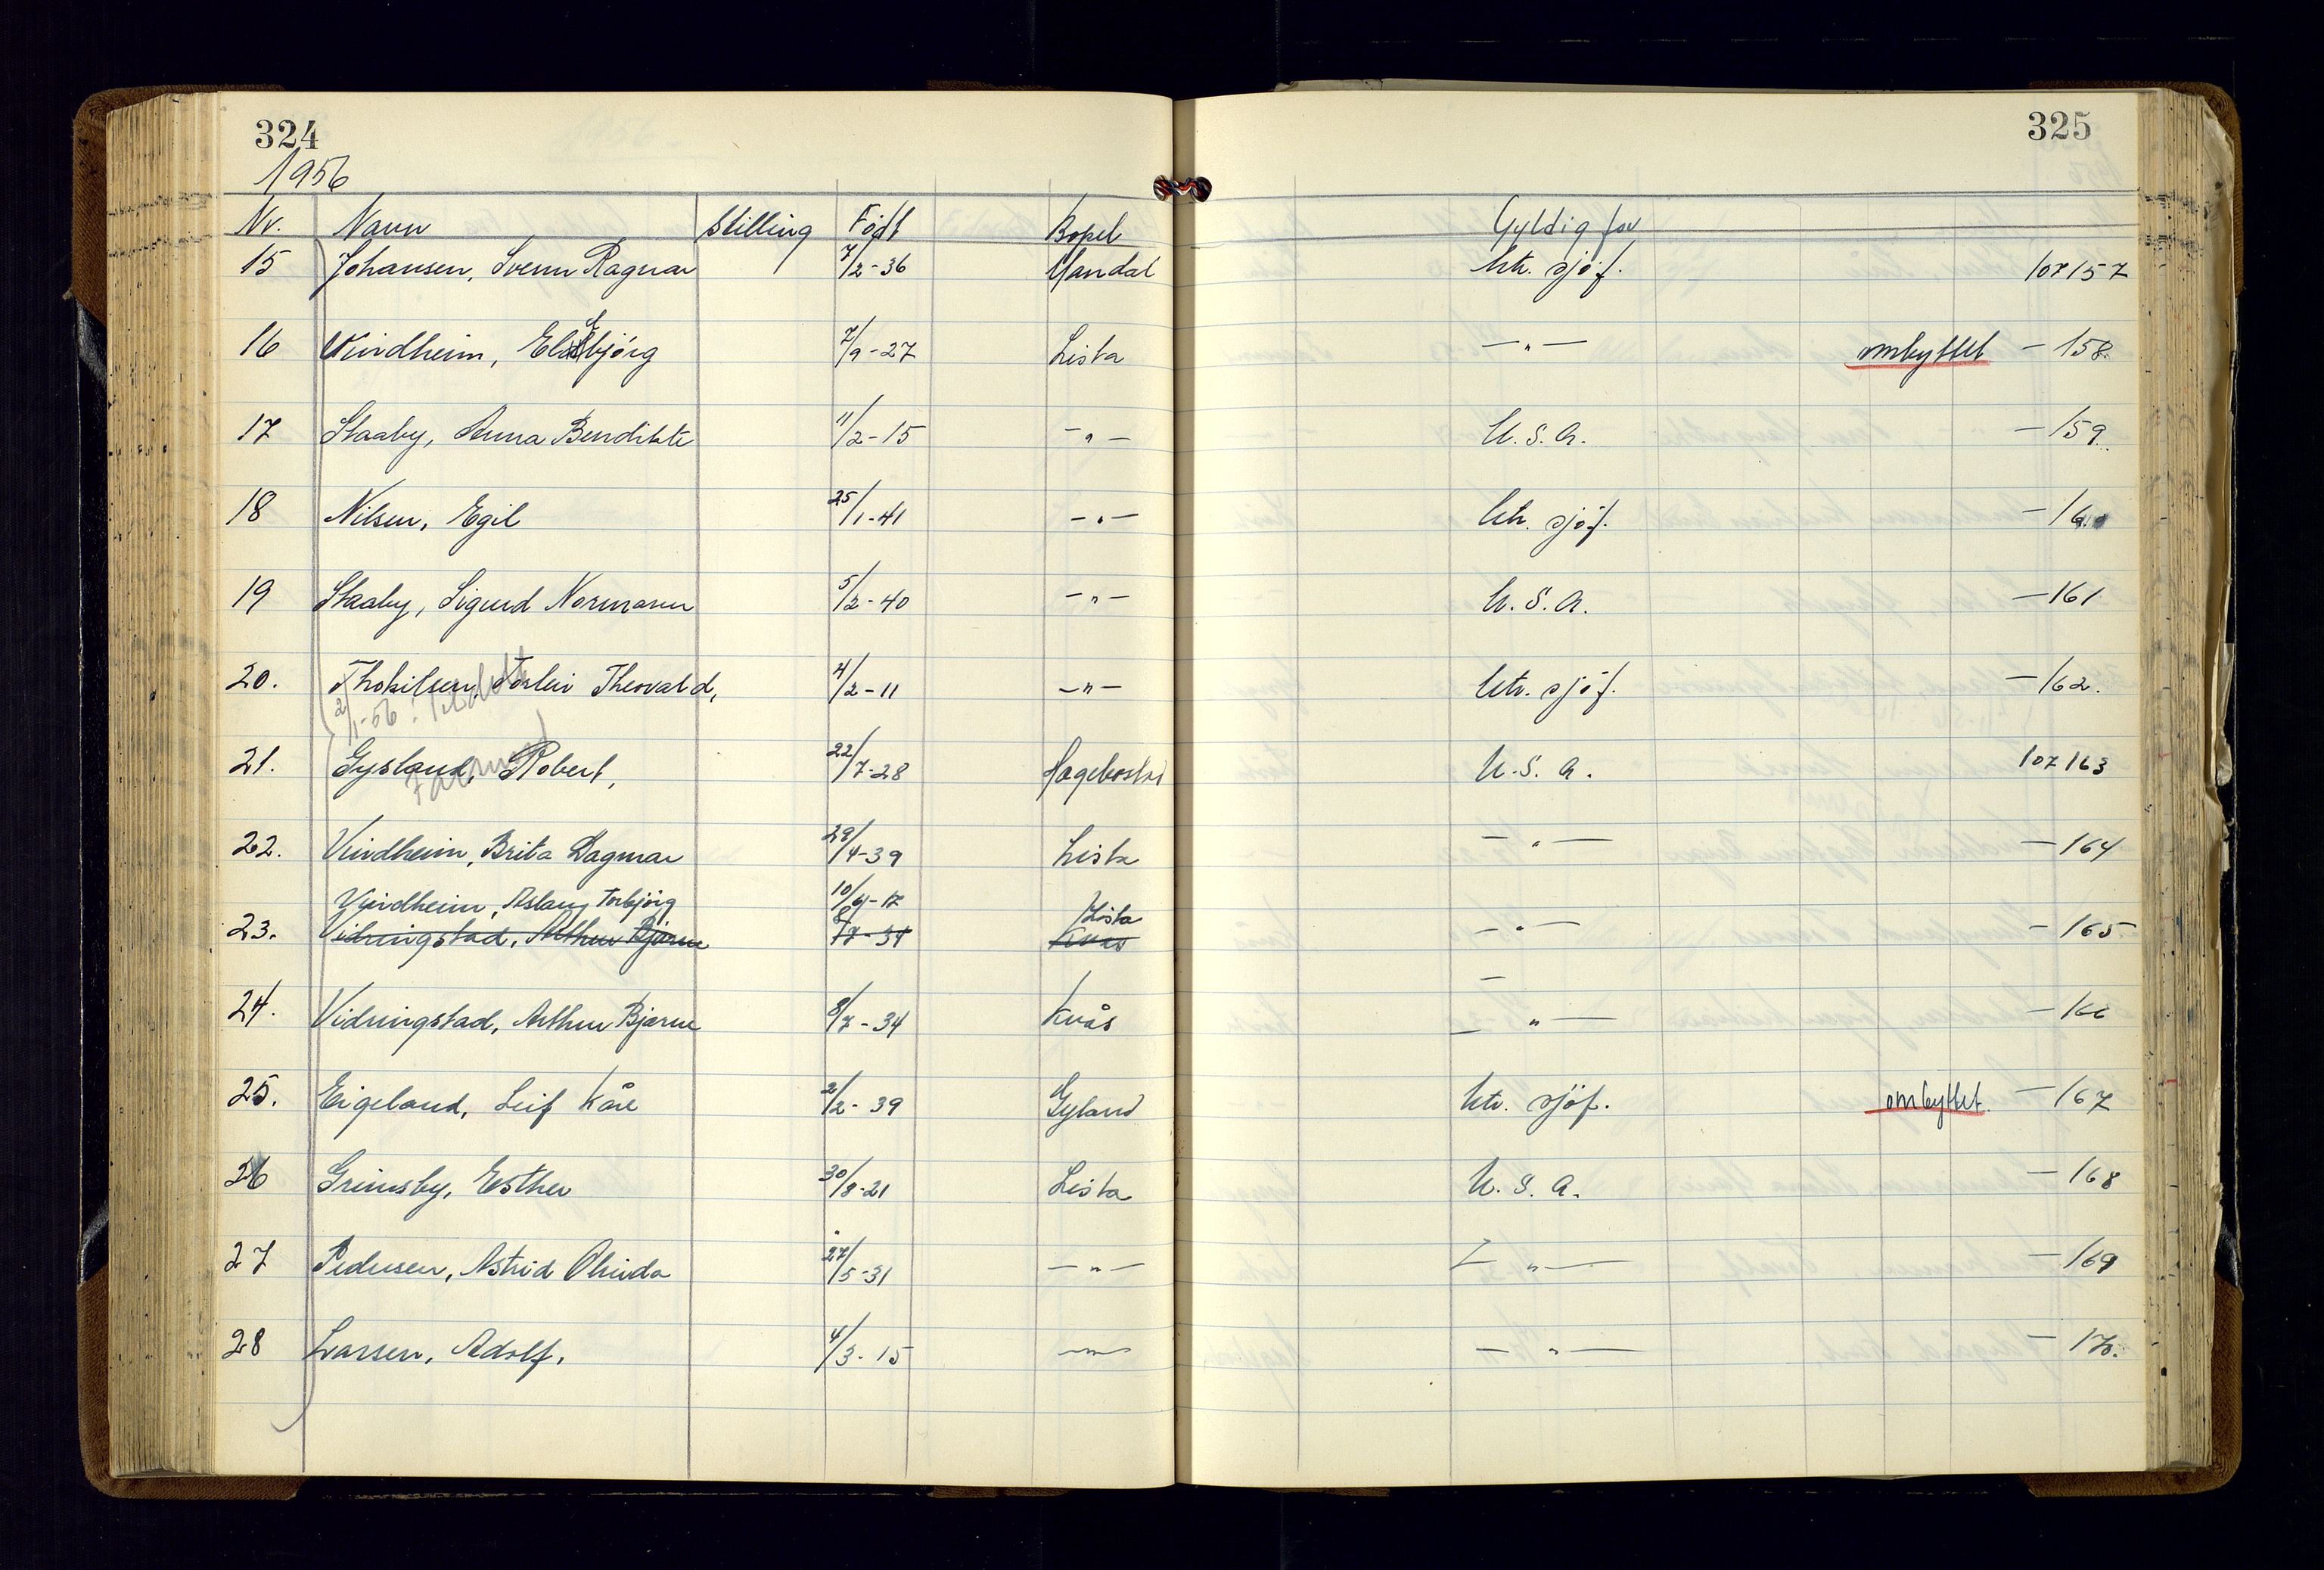 324
325
1956
Nr. Navn Stilling Født Bopel Gyldig for
15 Johansen, Svenn Ragnar 7/2-36 Mandal Utr. sjöf. 107157
16 Vindheim, 7/9-27 Lista — " — ombyttet — 158.
17 Staaby, Anna Bendikte 11/2-15 — " — U.S.A. — 159.
18 Nilsen, Egil 25/1-41 — " — Utr. sjöf. — 160
19 Staaby, Sigurd Normann 5/2-40 — " — U.S.A. — 161
20. Thorkilsen, Torleiv Theovald, 4/2-11 — " — Utr. sjöf. — 162.
2/1-56.
21. Gysland, Robert, 22/7-28 Hægebostad U.S.A. 107163
22. Vindheim, Brita Dagmar 29/4-39 Lista — " — — 164
Vindheim, Aslaug Torbjörg 10/6-17 Lista
23. Vidringstad, Arthur Bjarne 8/7-34 Kvås — " — — 165
24. Vidringstad, Arthur Bjarne 8/7-34 Kvås — " — — 166
25. Eigeland, Leif Kåre 2/2-39 Gyland Utr. sjöf. ombyttet. — 167
26 Grimsby, Esther 30/8-21 Lista U.S.A. — 168
27 Pedersen, Astrid Olinda 27/5-31 — " — — " — — 169
28 Larsen, Adolf. 4/3-15 — " — — " — — 170.